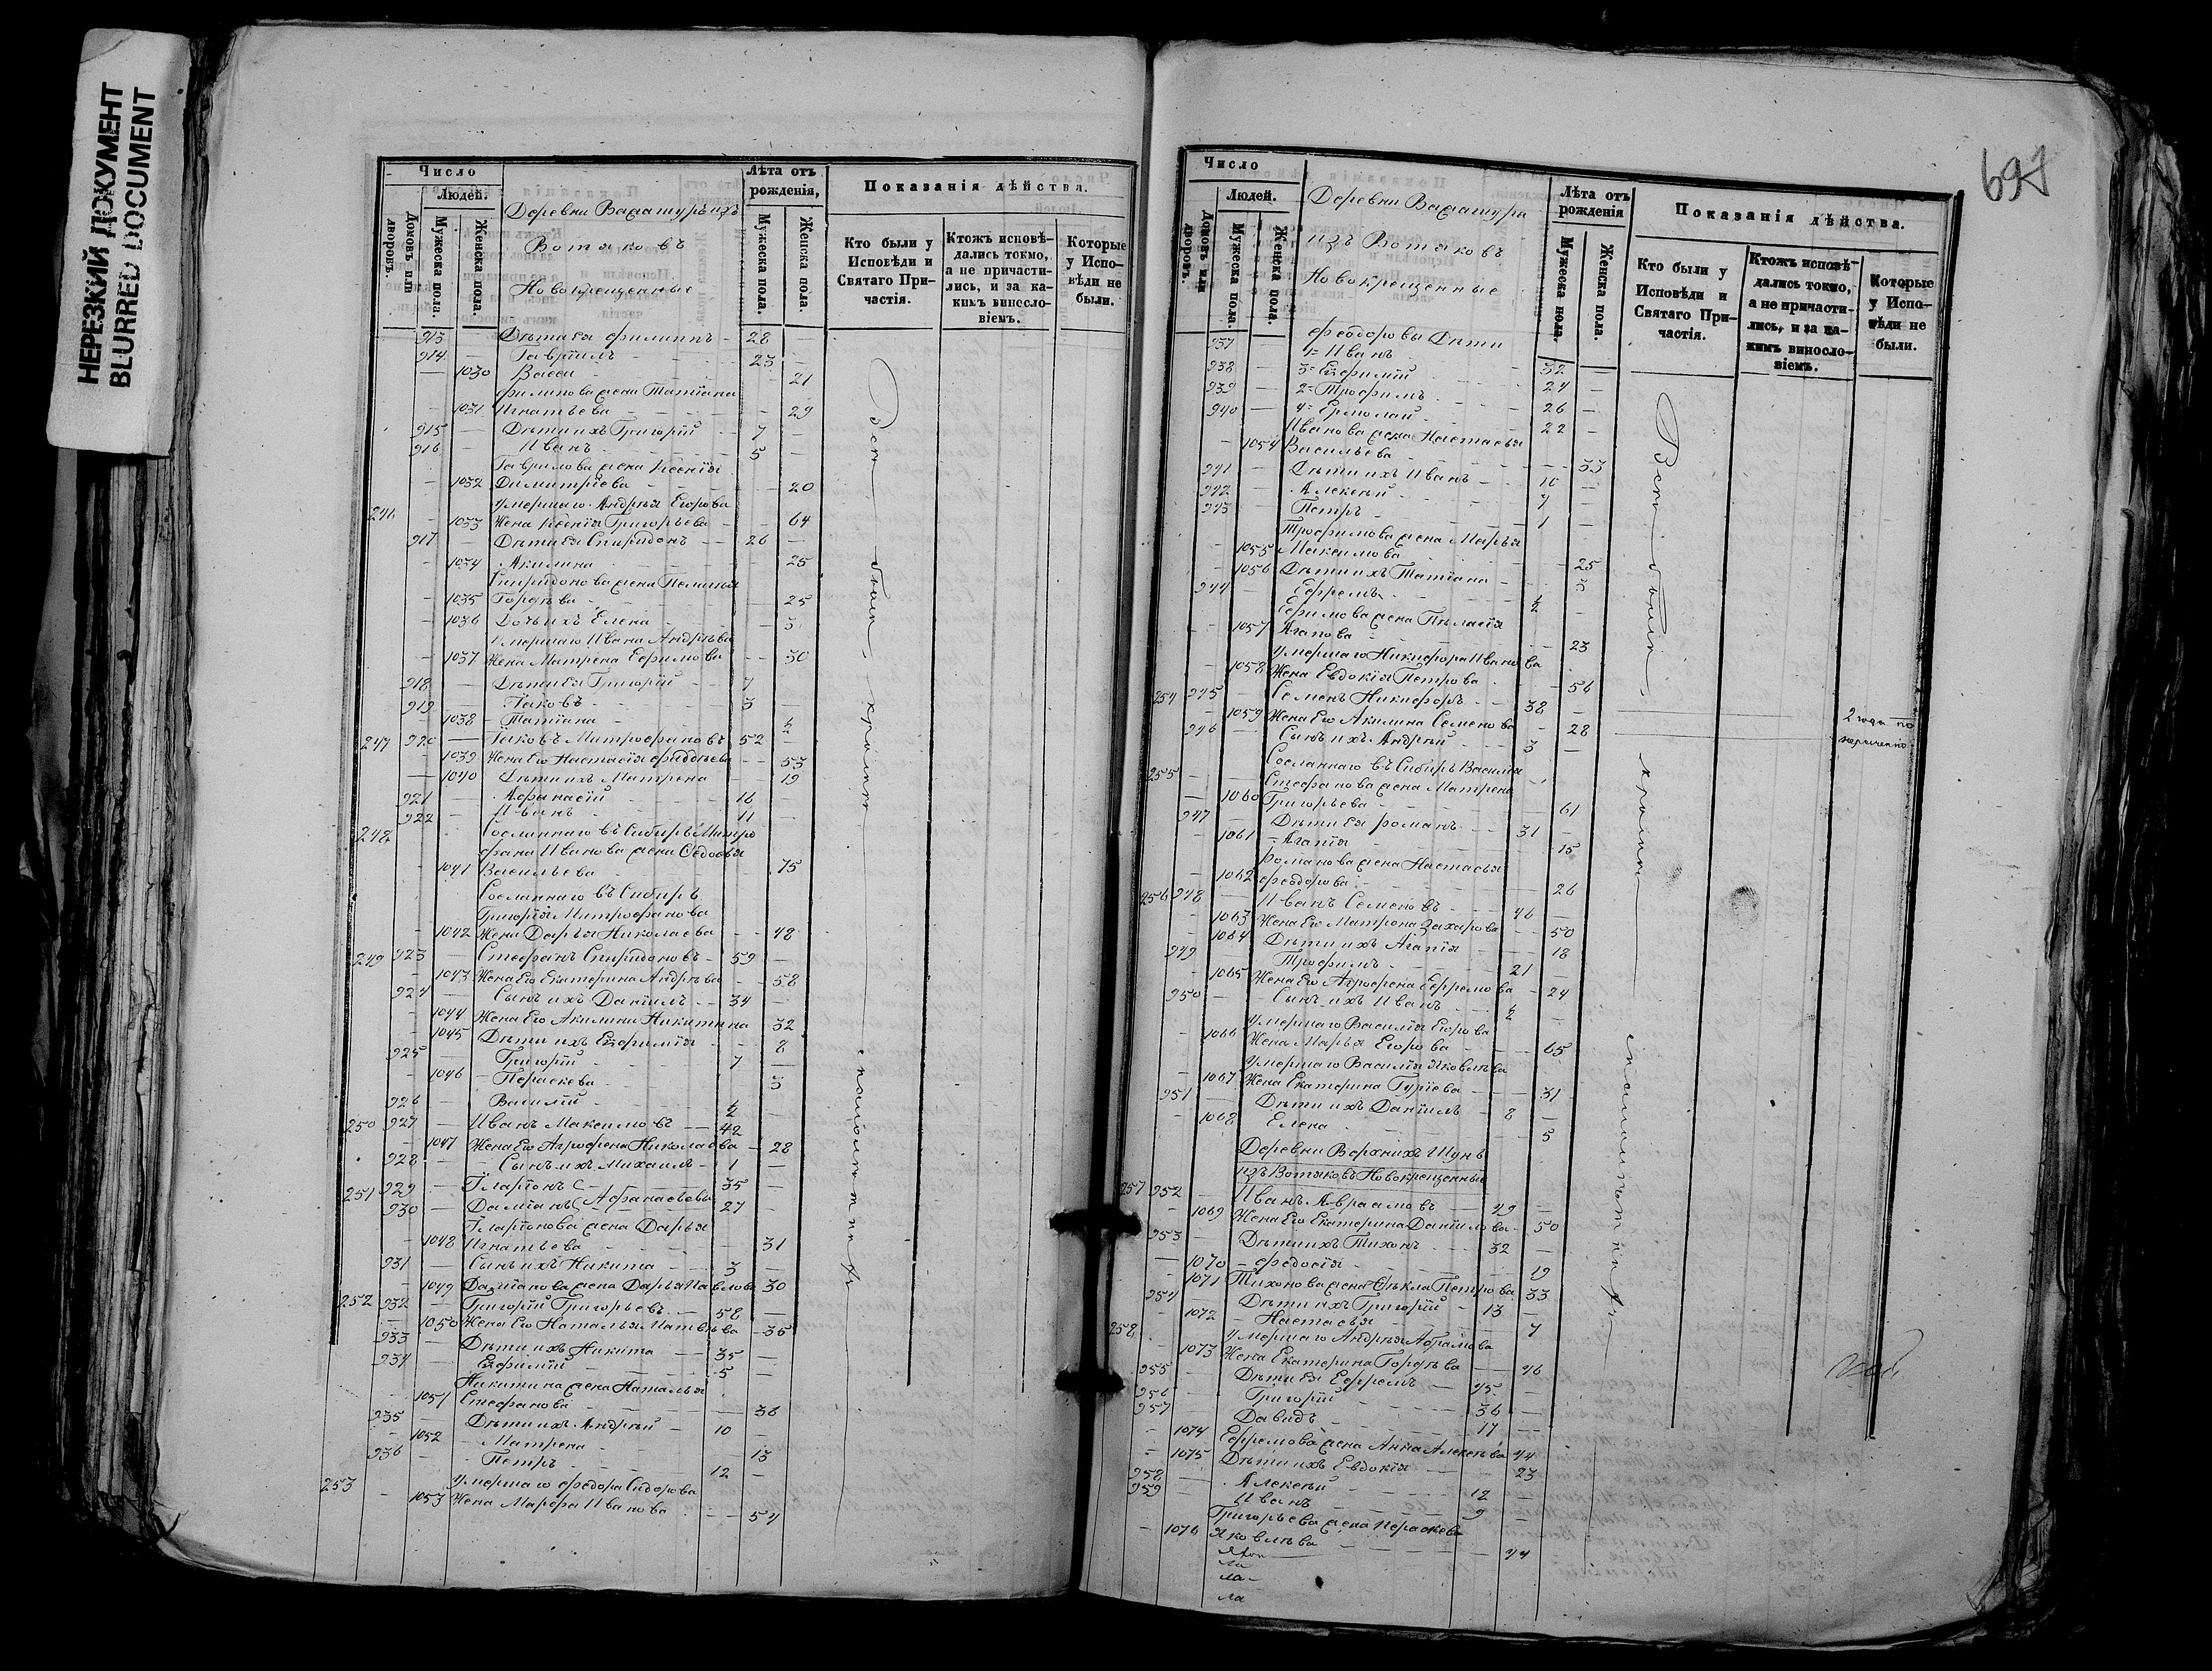 НЕРЕЗКИЙ ДОКУМЕНТ
BLURRED DOCUMENT
Число
Людей.
Домовъ или дворовъ.
Мужеска пола.
Женска пола.
Деревни Вахатурь изъ
Вотяковъ
Новокрещенные
Лѣта отъ рождения,
Мужеска пола.
Женска пола.
Показанія дѣйства.
Кто были у Исповѣди и Святаго Причастія.
Ктожъ исповѣдались токмо, а не причастились, и за какимъ винословіемъ.
Которые у Исповѣди не были.
913 — Дѣти ея Филиппъ - 28 —
914 — Гавріилъ - 23 —
— 1030 Васса - 21
Филипова жена Татіана
- 1031 Игнатьева - 29
915 — Дѣти ихъ Григорій - 7 -
916 - Иванъ - 5 -
Гаврилова жена Ксенія
- 1032 Димитріева - 20
246 умершаго Андрея Егорова
- 1033 Жена Ксенія Григорьева - 64
917 - Дѣти ея Спиридонъ - 26 -
- 1034 Акилина 25
Спиридонова жена Пелагия
- 1035 Гордѣева - 25
- 1036 Дочь ихъ Елена - 3
Умершаго Ивана Андрѣева
- 1037 Жена Матрена Ефимова - 30
918 - Дѣти ея Григорій - 7
919 Іаковъ - 3 -
1038 - Татіана - ½
247 920 — Іаковъ Митрофановъ 52 -
- 1039 Жена Его Настасія 53
- 1040 Дѣти ихъ Матрена 19
921 — Афанасій 16 -
922 - Иванъ - 11 -
248 Сосланнаго въ Сибирь Митро
фана Иванова жена Федосья
- 1041 Васильева - 75
Сосланнаго въ Сибирь
Григорія Митрофанова
- 1042 Жена Дарья Николаева - 48
249 923 — Стефанъ Спиридоновъ - 59 -
- 1043 Жена Его Екатерина Андрѣева - 58
924 — Сынъ ихъ Даніилъ - 34 -
- 1044 Жена Его Акилина Никитина 32
- 1045 Дѣти ихъ Евфимія - 8
925 — Григорій - 7 —
- 1046 - Параскева - 3
926 - Василій - ½ —
250 927 — Иванъ Максимовъ — 42
- 1047 Жена Его Агрофена Николаева - 28
928 - Сынъ ихъ Михаилъ - 1 —
251 929 — Іларіонъ 35 -
930 — Даміанъ Афанасьевы 27 -
Іларіонова жена Дарья
- 1048 Игнатьева - 31
931 — Сынъ ихъ Никита - 3 -
- 1049 Даміанова жена Дарья Павлова 30
252 932 — Григорій Григорьевъ - 58 —
- 1050 Жена Его Наталья Матвѣева - 35
933 — Дѣти ихъ Никита - 35 —
934 - Евфимій - 5 -
Никитина жена Наталья
- 1051 Стефанова - 36
935 — Дѣти ихъ Андрей - 10 —
- 1052 - Матрена - 13
936 - Петръ - 12 -
253 умершаго Федора Сидорова
- 1053 Жена Марфа Иванова - 54
Вси были кромѣ малолѣтнихъ
697
Число
Людей.
Домовъ или дворовъ.
Мужеска пола.
Женска пола.
Деревни Вахатури
изъ Вотяковъ
Новокрещенные
Лѣта отъ рождения
Мужеска пола.
Женска пола.
Показанія дѣйства.
Кто были у Исповѣди и Святаго Причастія.
Ктожъ исповѣдались токмо, а не причастились, и за какимъ винословіемъ.
Которые у Исповѣди не были.
Феодоровы Дѣти
937 1= Иванъ - 32 —
938 — 3= Евфимій - 24 -
939 — 2= Трофимъ - 26 -
940 — 4= Ермолай - 22 -
Иванова жена Настасья
- 1054 Васильева - 33
941 - Дѣти ихъ Иванъ - 10 -
942 - Алексѣй - 7 -
943 - Петръ - 1 -
Трофимова жена Марья
- 1055 Максимова - 25
- 1056 Дѣти ихъ Татіана - 3
944 - Ефремъ - ½ -
Ефимова жена Пелагія
- 1057 Агапова - 23
умершаго Никифора Иванова
- 1058 Жена Евдокія Петрова - 56
254 945 — Семенъ Никифоръ - 38 -
- 1059 Жена Его Акилина Семенова - 28
946 — Сынъ ихъ Андрей - 3 -
2 года по
255 Сосланнаго въ Сибирь Василія
Стефанова жена Матрена
- 1060 Григорьева - 61
947 - Дѣти ея Романъ - 31 -
- 1061 - Агапія - 15
Романова жена Настасья
- 1062 Феодорова - 26
256 948 — Иванъ Семеновъ - 46 -
- 1063 Жена Его Матрона Захарова - 50
- 1064 Дѣти ихъ Агапія - 18
949 Трофимъ - 21 -
- 1065 Жена Его Агрофена Ефремова - 24
950 — Сынъ ихъ Иванъ - ½ -
умершаго Василія Егорова
- 1066 Жена Марья Егорова - 65
умершаго Василія Яковлѣва
- 1067 Жена Екатерина Гурьева - 31
951 — Дѣти ихъ Даніилъ - 8 -
- 1068 Елена - 5
Деревни Верхнихъ Шунъ
изъ Вотяковъ Новокрещенные
257 952 — Иванъ Авраамовъ - 49 -
- 1069 Жена Его Екатерина Данилова - 50
953 — Дѣти ихъ Тихонъ - 32 -
— 1070 - Федосія - 19
- 1071 Тихонова жена Ѳекла Петрова 33
954 — Дѣти ихъ Григорій - 13 —
- 1072 - Настасья - 7
258 умершаго Андрея Абрамова
- 1073 Жена Екатерина Гордѣева - 46
955 — Дѣти ея Ефремъ - 45 -
956 - Григорій - 36 —
957 Давидъ - 17 -
- 1074 Ефремова жена Анна Алексѣева 44
- 1075 Дѣти ихъ Евдокія - 23
958 — Алексѣй - 12 -
959 - Иванъ - 9 -
Григорьева жена Параскева
- 1076 Яковлѣва - 44
Вси были кромѣ малолѣтнихъ